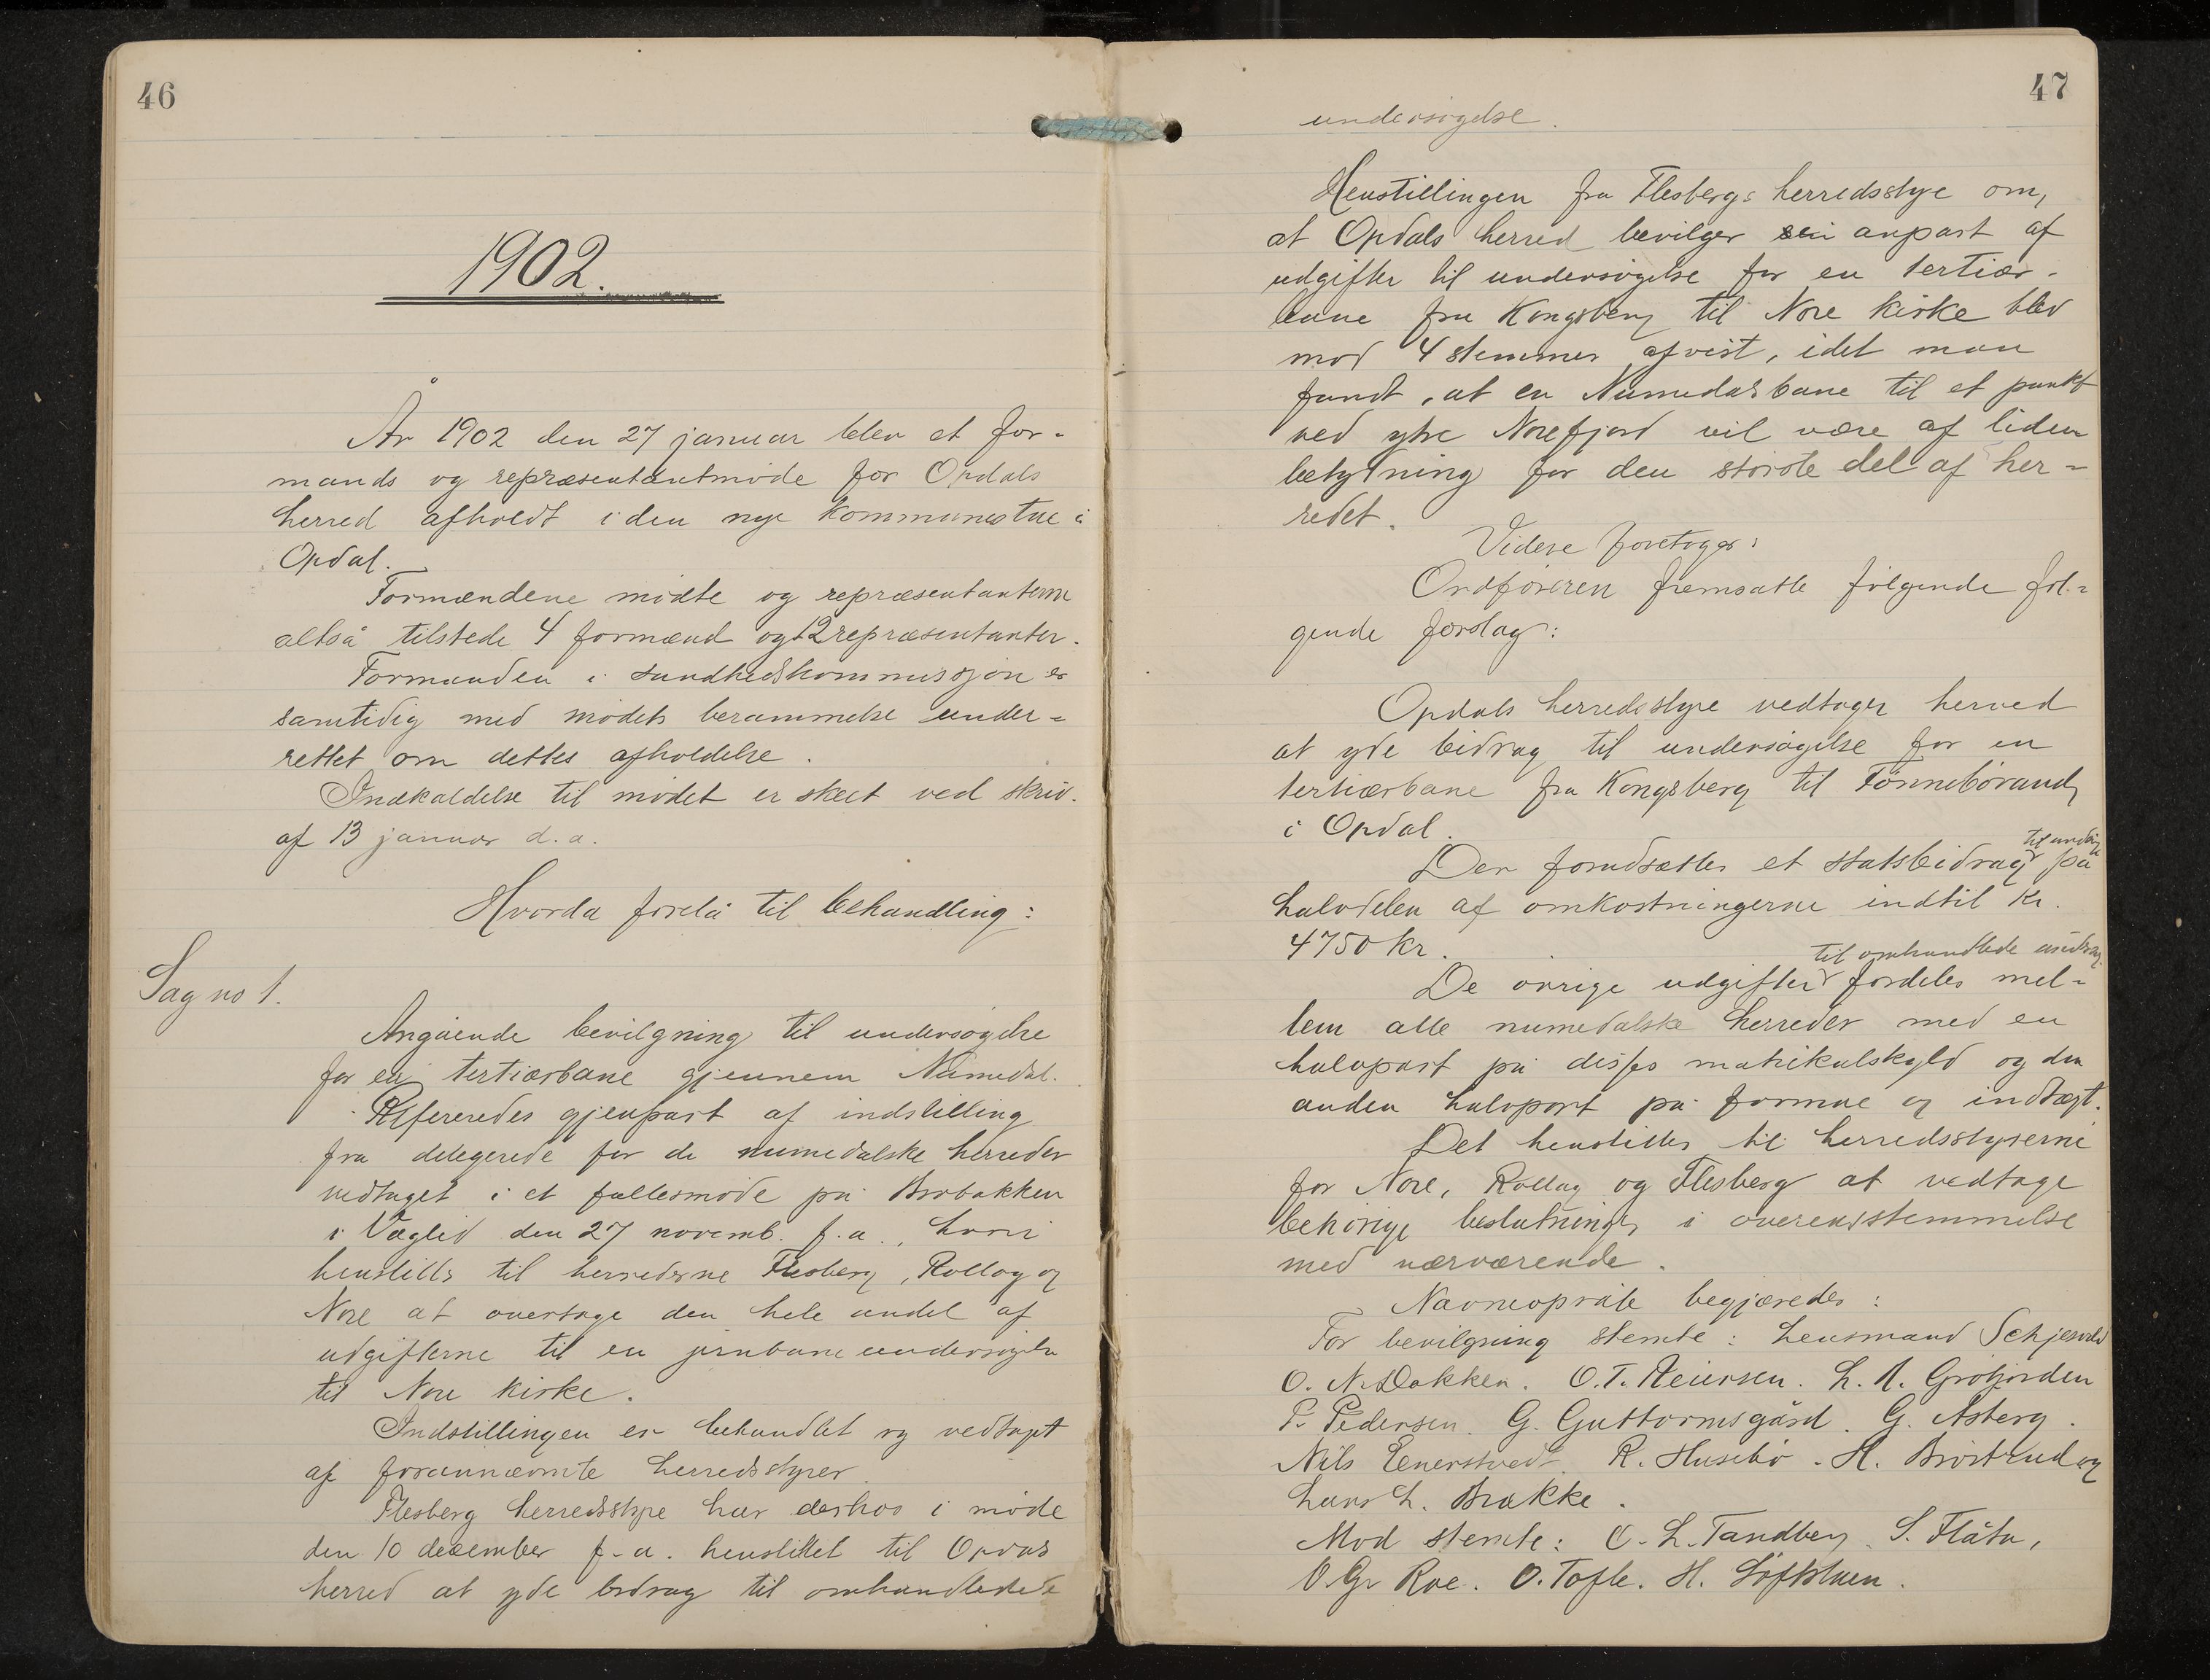 46
1902.
År 1902 den 27 januar blev et for-
mands og repræsentantmøde for Opdals
herred afholdt i den nye kommunestue i
Opdal.
Formændene mødte og repræsentanterne
altså tilstede 4 formænd og 12 repræsentanter.
Formanden i sundhedskommissjon er
samtidig med mødets berammelse under-
rettet om dettes afholdelse.
Indkaldelse til mødet er skeet ved skriv.
af 13 januar d.a.
Hvorda forelå til behandling:
Sag no 1.
Angående bevilgning til undersøgelse
for en tertiærbane gjennem Numedal.
Refereredes gjenpart af indstilling
fra delegerede for de numedalske herreder
vedtaget i et fællesmøde på Brobakken
i Væglid den 27 novemb. f.a., hvori
henstilles til herrederne Flesberg, Rollag og
Nore at overtage den hele andel af
udgifterne til en jernbaneundersøgelse
til Nore kirke.
Indstillingen er behandlet og vedtaget
af forannævnte herredsstyrer.
Flesberg herredsstyre har derhos i møde
den 10 december f.a. henstillet til Opdals
herred at yde bidrag til omhandlede
47
undersøgelse.
Henstillingen fra Flesbergs herredsstyre om,
at Opdals herred bevilger sin anpart af
udgifter til undersøgelse for en tertiær-
bane fra Kongsberg til Nore kirke blev
mod 4 stemmer afvist, idet man
fandt, at en Numedalsbane til et punkt
ved ytre Norefjord vil være af liden
betydning for den største del af her-
redet.
Videre foretoges:
Ordføreren fremsatte følgende føl-
gende forslag:
Opdals herredsstyre vedtager herved
at yde bidrag til undersøgelse for en
tertiærbane fra Kongsberg til Fønnebøraud
i Opdal.
Der forudsættes et statsbidrag på
halvdelen af omkostningerne indtil kr.
4750 kr.
til omhandlede undersøg.
De øvrige udgifter fordeles mel-
lem alle numedalske herreder med en
halvpart på disses matrikulskyld og den
anden halvpart på formue og indtægt.
Det henstilles til herredsstyrerne
for Nore, Rollag og Flesberg at vedtage
behørige beslutninger i overensstemmelse
med nærværende.
Navneopråb begjæredes:
For bevilgning stemte: lensmand Schjesvold
O. N. Dokken. O. T. Reiersen. H. A. Grøtjorden
P. Pedersen. G. Guttormsgård. G. Åsberg.
Nils Eenerstvedt. R. Husebø. H. Brostrud og
Hans H. Brække.
Mod stemte: O. H. Tandberg. S. Flåta,
O. Gr Roe. O. Tofte. H. Løftstuen.